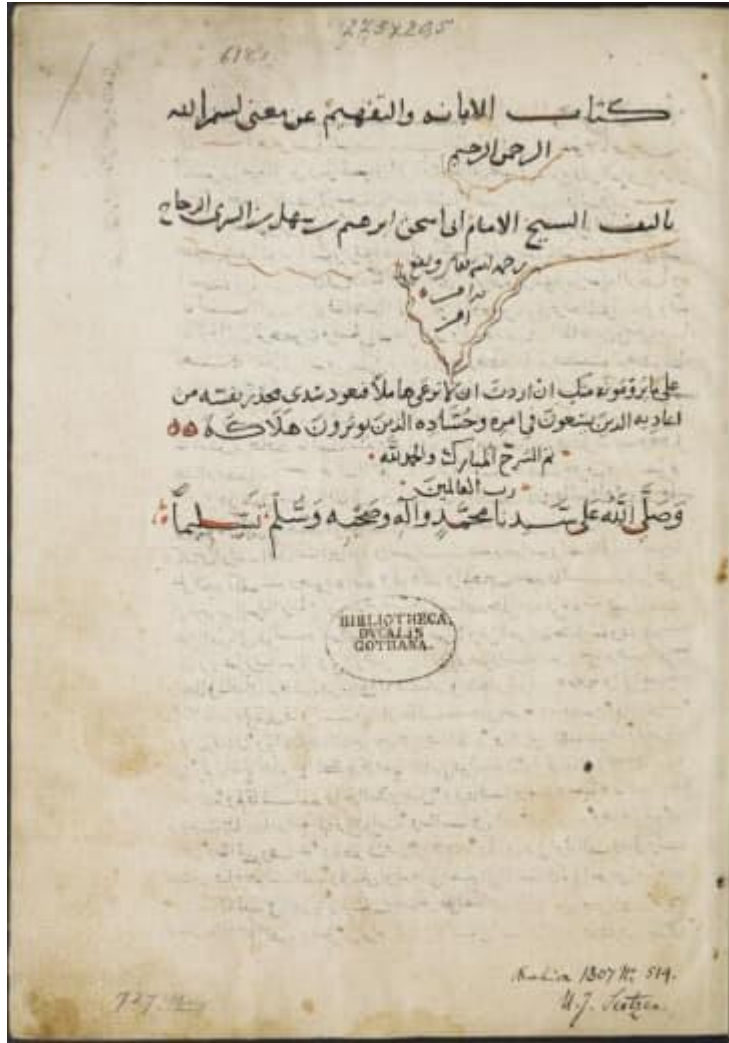 275x205
كتاب الابانه والتفهيم عن معنى بسم الله
الرحمن الرحيم
تاليف الشيخ الامام ابى اسحق ابرهيم بن سهل بن السرى الزجاج
رحمه الله تعالى ونفع
به امين
امين
على ما يرومونه منك ان اردت ان لا تدعى جاهلاً فنعود نبتدى محذر نفسه من
اعاديه الذين يسعون فى امره وحُسَّاده الذين يوثرون هَلَاكَهُ
تم الشرح المبارك والحمد لله
رب العالمين
وَصَلَّى اللَّهُ عَلَى سَيِّدِنَا مُحَمَّدٍ وَآلِهِ وَصَحْبِهِ وَسَلَّمَ تَسْلِيماً
BIBLIOTHECA
DVCALIS
GOTHANA.
Kahira 1807 N. 514.
U. J. Seetzen.